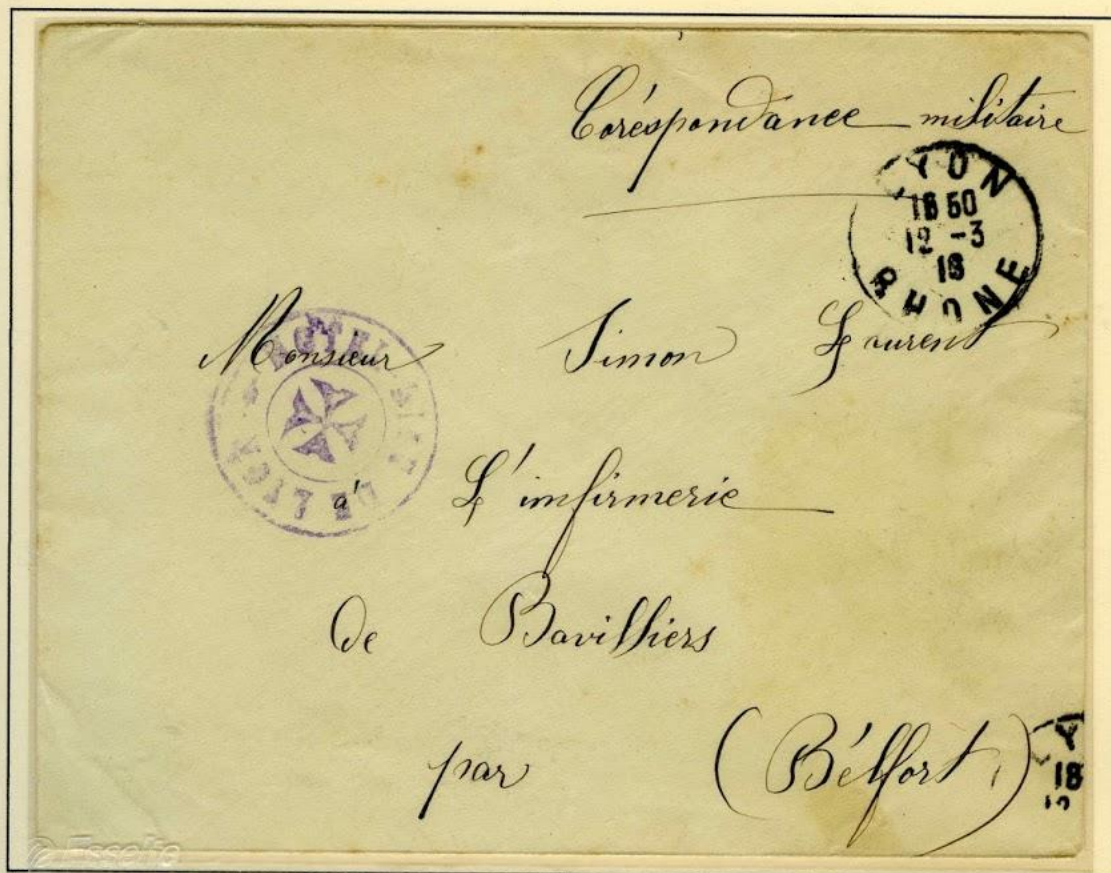 Coréspondance militaire
LYON
18 50
12 -3
18
RHONE
Monsieur Simon Laurent
DE LYON
à L'imfirmerie
de Bavilliers
par (Bélfort)
Y
18
12
© Esselfe